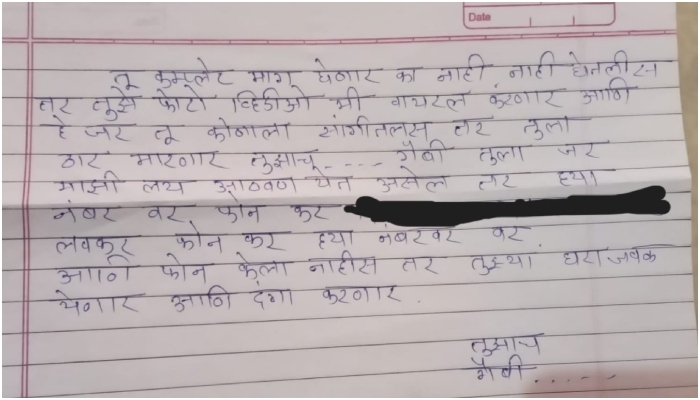 Date
तू कम्प्लेट माग घेणार का नाही नाही घेतलीस
तर तुझे फोटो व्हिडीओ मी वायरल करणार आणि
हे जर तू कोणाला सांगीतलस तर तुला
ठार मारणार तुझाच ..... गैबी तुला जर
माझी लय आठवण येत असेल तर ह्या
नंबर वर फोन कर
लवकर फोन कर ह्या नंबरवर वर
आणि फोन केला नाहीस तर तुझ्या घराजवळ
येणार आणि दंगा करणार.
तुझाच
गैबी .....